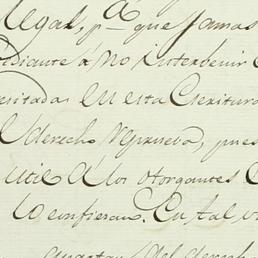 legal, pa que jamas
ediante a no intervenir
esitadas en esta Escritura
derecho reprueva, pues
util a los otorgantes
lo confieran. En tal, v
del derecho